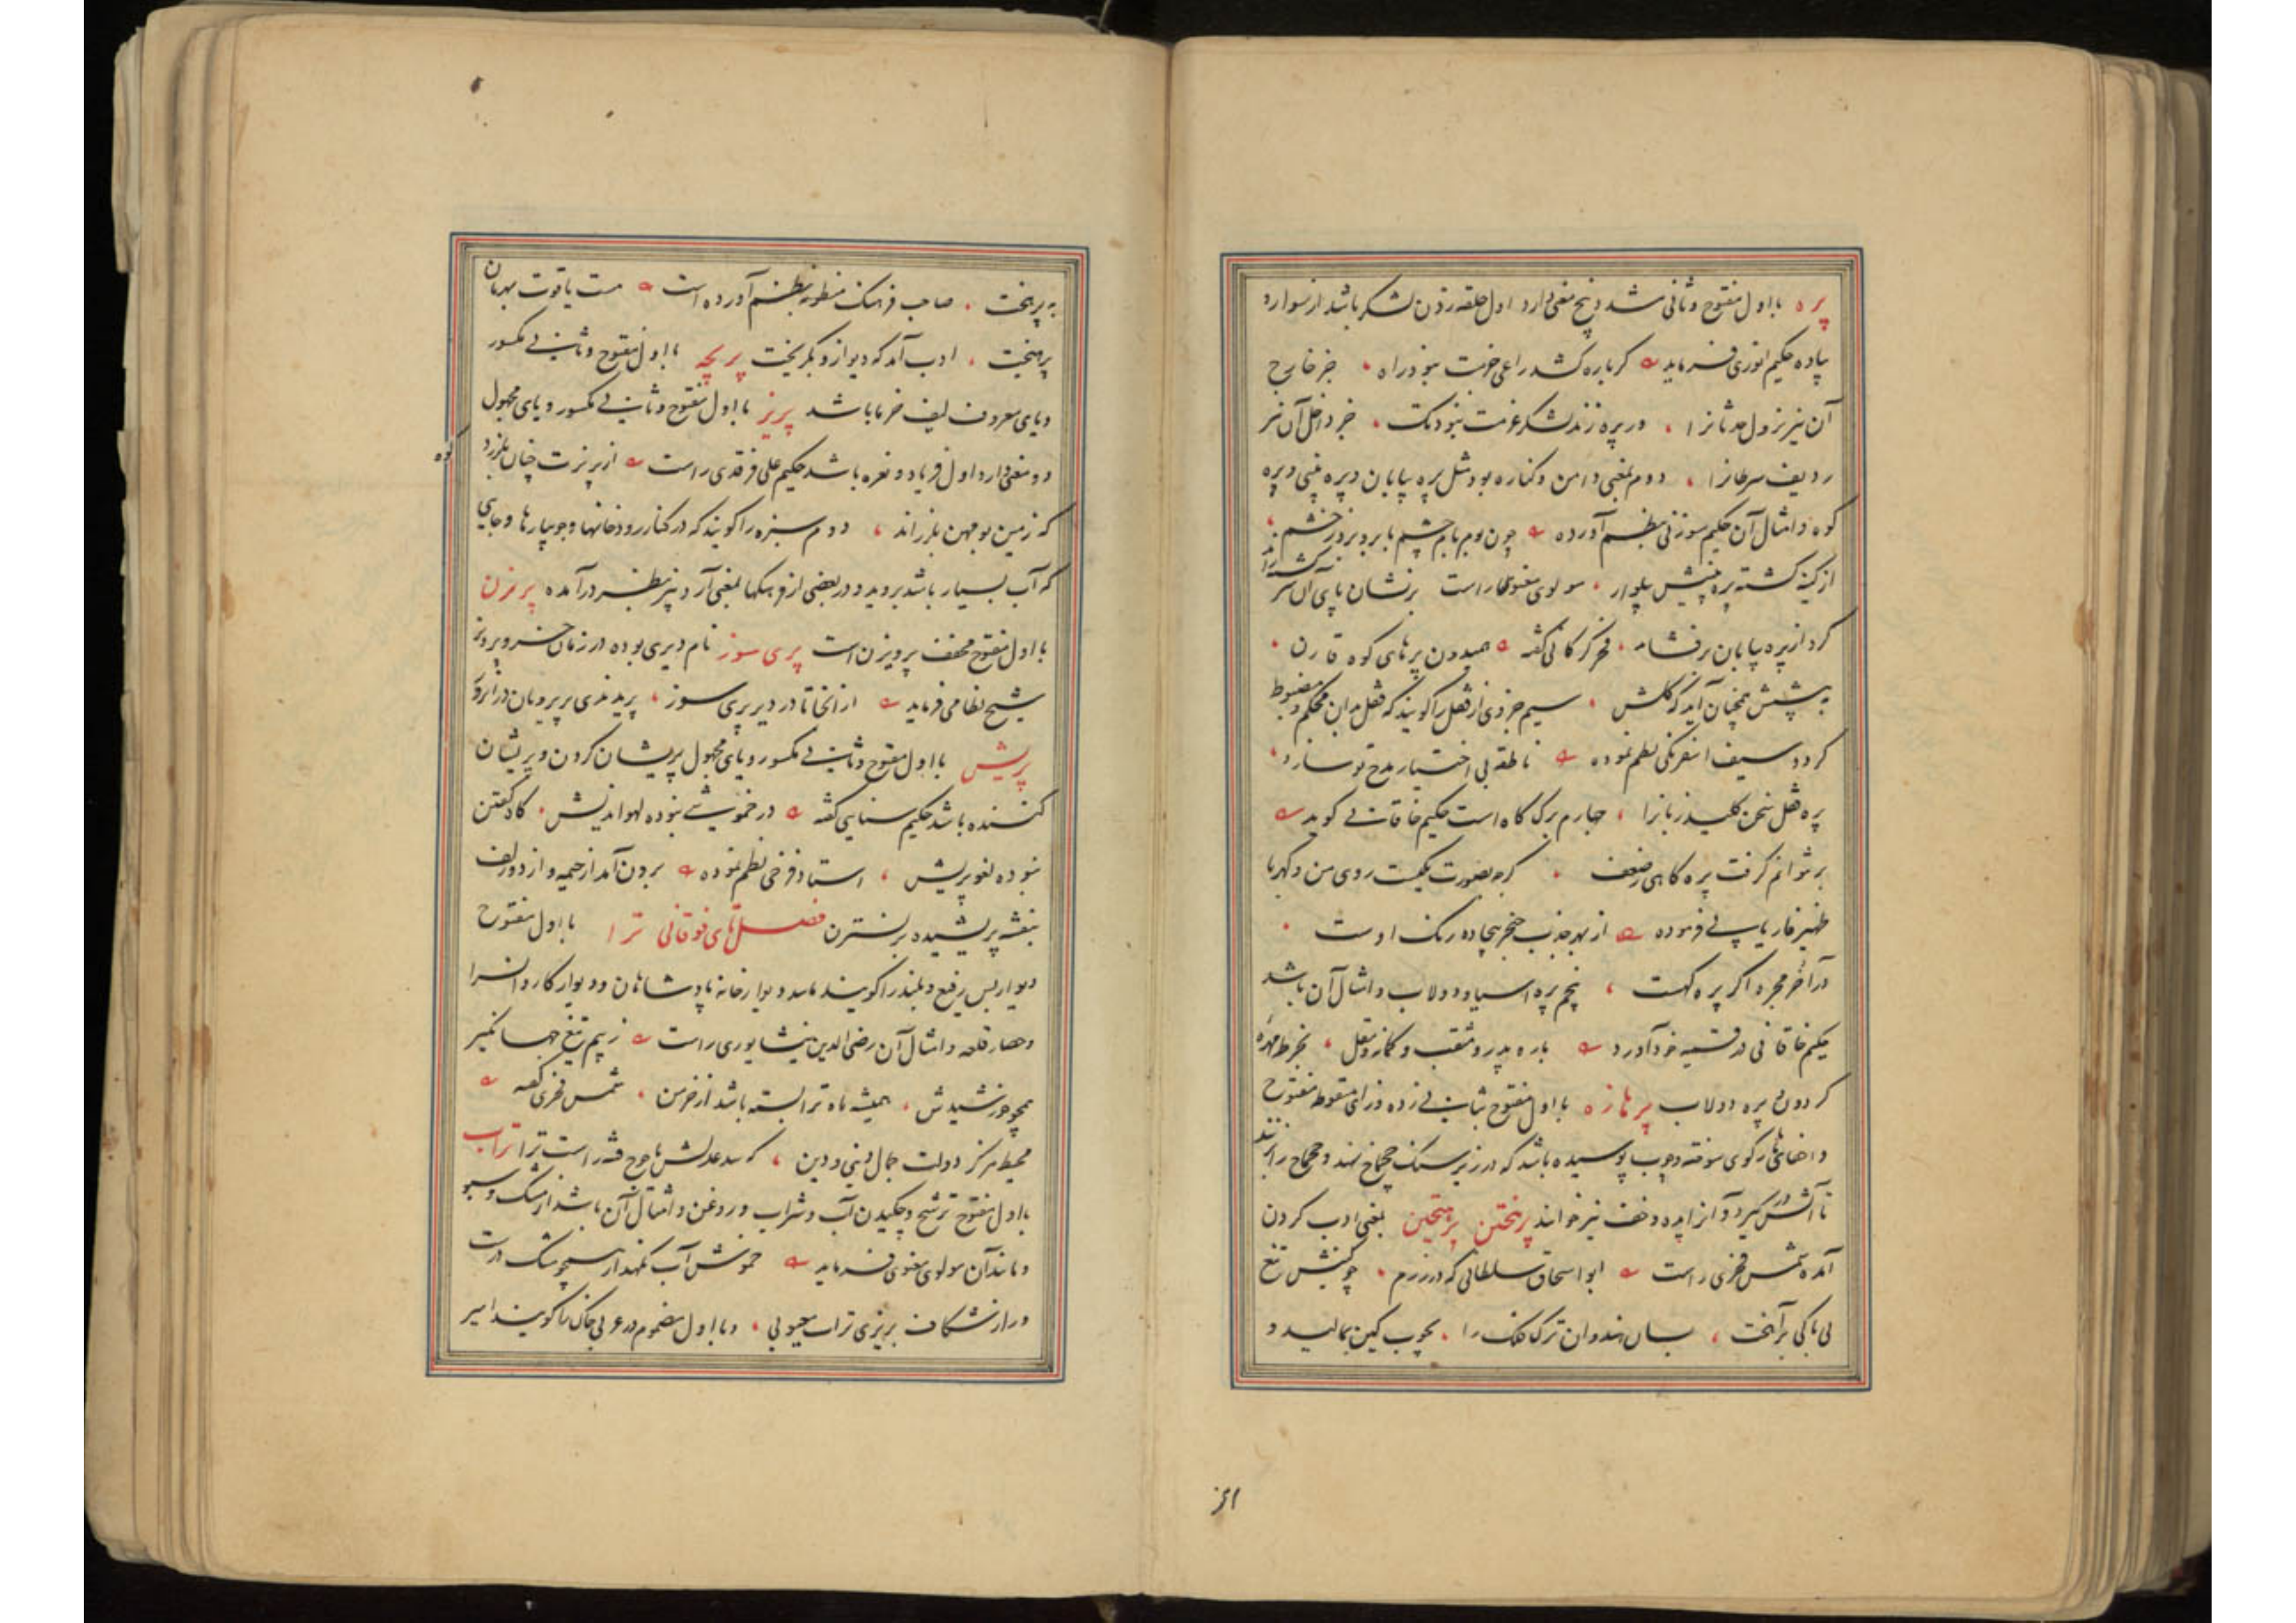 پره با اول مفتوح و ثانی مشدد پنج معنی دارد اول حلقه زدن لشکر باشد از سوار و
پیاده حکیم انوری فرماید گر باره کشد راعی حزمت نبود راه جز خارج
آن نیز نزول حدثانرا ور پره زند لشکر عزمت نبود تک جز داخل آن نیز
ردیف سرطانرا دوم بمعنی دامن و کناره بود مثل پره بیابان و پره بینی و پره
کوه و امثال آن حکیم سوزنی بنظم آورده چون بوم بام چشم بابرو برد ز خشم
از کینه گشته پره بینیش پلوار مولوی معنوی راست بر نشان پای آن سر
کرد از پره بیابان بر فشاند فخر گرگانی گفته همیدون پره های کوه قارن
به پیشش همچنان آید که گلشن سیم جزوی از قفل را گویند که قفل بدان محکم و مضبوط
گردد سیف اسفرنگی نظم نموده ناطقه بی اختیار مدح تو سازد
پره قفل سخن کلید زبانرا چهارم برگ کاه است حکیم خاقانی گوید
بر نتوانم گرفت پره کاهی ز ضعف گرچه بصورت یکیست روی من و کهربا
ظهیر فاریابی فرموده از بهر جذب خنجر بیجاده رنگ اوست
در آخر مجره اگر پره کهست پنجم پره آسیا و دولاب و امثال آن باشد
حکیم خاقانی در قسمیه خود آورد باره بدر و مثقب و کمانه و مقل بخرط مهره
گردون پره دولاب پرهازه با اول مفتوح بثانی زده و زای منقوطه مفتوح
و اخفای ها رکوی سوخته و چوب پوسیده باشد که در زیر سنگ چخماخ نهند و چخماخ را زنند
تا آتش در گیرد و آنرا پده و خف نیز خوانند پرهختن پرهیختن بمعنی ادب کردن
آمده شمس فخری راست ابو اسحاق سلطانی که در رزم چو بینش تیغ
بی باکی برآهخت بسان هندوان ترک فلک را بچوب کین بمالید و
به پرهخت صاحب فرهنگ منظومه بنظم آورده است هست یاقوت بهرمان
پرهیخت ادب آمد که دیو ازو بگریخت پریچه با اول مفتوح و ثانی مکسور
و یای معروف لیف خرما باشد پریز با اول مفتوح و ثانی مکسور و یای مجهول
دو معنی دارد اول فریاد و نعره باشد حکیم علی فرقدی راست از پریزت چنان بلرزد کوه
که زمین بومهن بلرزاند دوم سبزه را گویند که در کنار رودخانها و جویبارها و جایی
که آب بسیار باشد بروید و در بعضی از فرهنگها بمعنی آرد بیز بنظر در آمده پریزن
با اول مفتوح مخفف پرویزن است پری سوز نام دیری بوده در زمان خسرو پرویز
شیخ نظامی فرماید از آنجا تا در دیر پری سوز پریدندی پریرویان در آنروز
پریش با اول مفتوح و ثانی مکسور و یای مجهول پریشان کردن و پریشان
کننده باشد حکیم سنایی گفته در خموشی نبوده لهو اندیش گاه گفتن
نبوده لغو پریش استاد فرخی نظم نموده برون آمد از خیمه و از دو زلف
بنفشه پریشیده بر نسترن فصل تای فوقانی ترا با اول مفتوح
دیوار بس رفیع و بلند را گویند مانند دیوار خانه پادشاهان و دیوار کاروانسرا
و حصار قلعه و امثال آن رضی الدین نیشابوری راست ز بیم تیغ جهانگیر
همچو خورشیدش همیشه ماه ترا بسته باشد از خرمن شمس فخری گفته
محیط مرکز دولت جمال دنیی و دین که سد عدلش یاجوج فتنه راست ترا تراب
با اول مفتوح ترشح و چکیدن آب و شراب و روغن و امثال آن باشد از مشک و سبو
و مانند آن مولوی معنوی فرماید خموش آب نگهدار همچو مشک درست
ور از شکاف بریزی تراب معیوبی و با اول مضموم در عربی خاک را گویند امیر